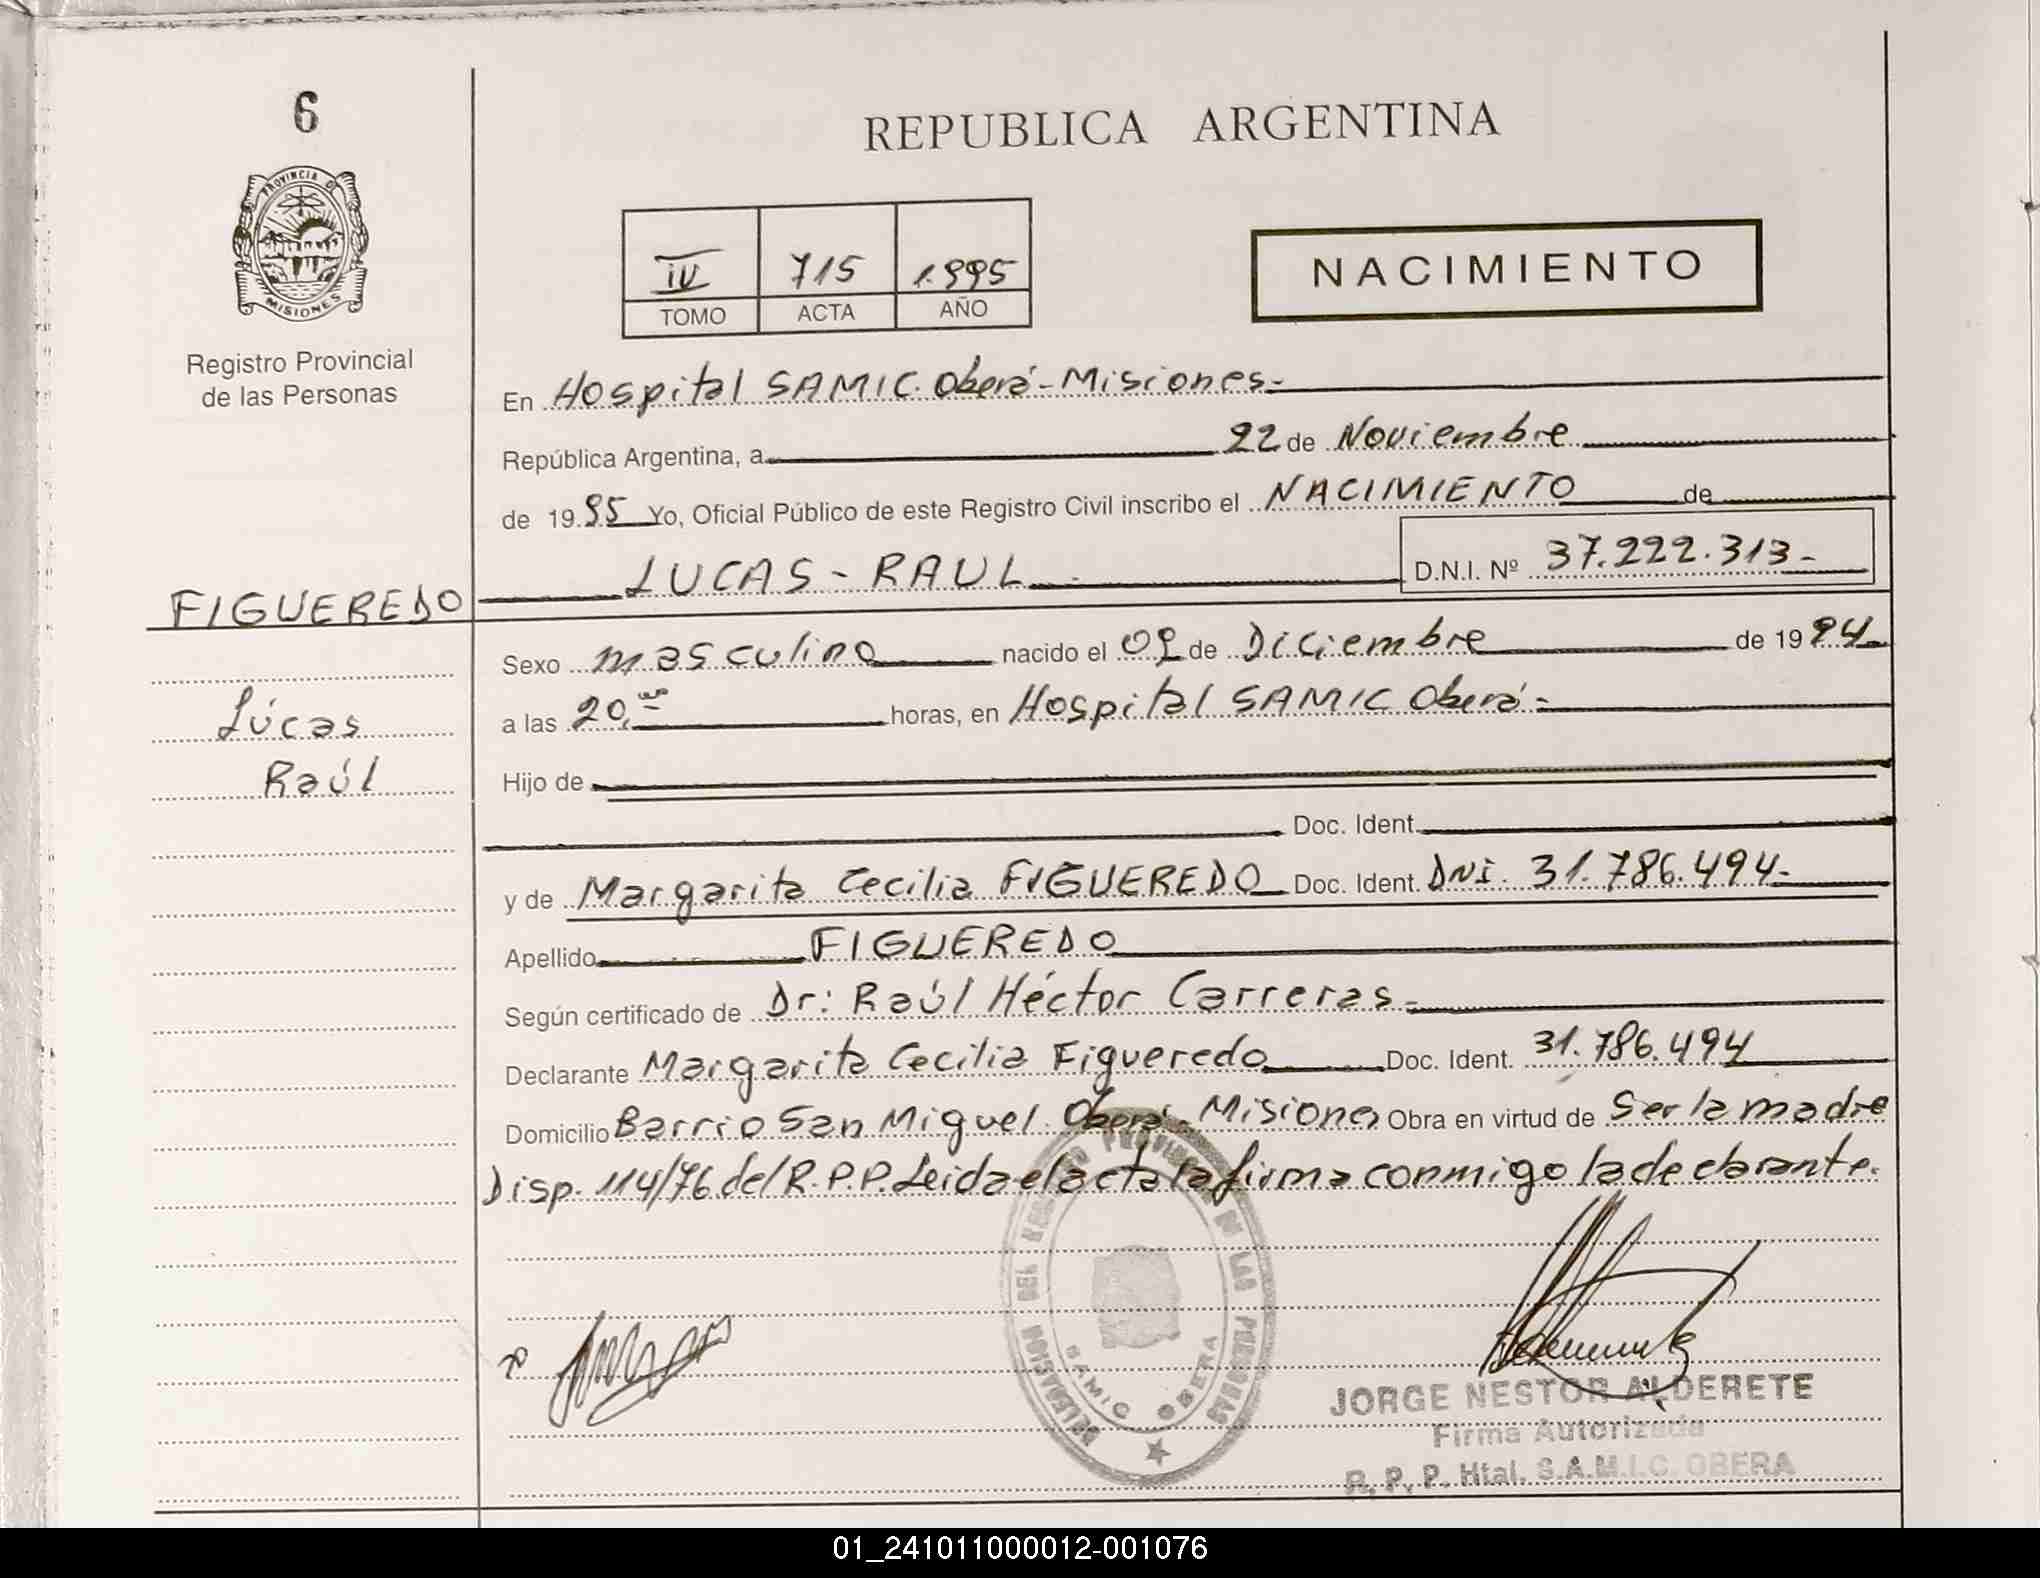 6
REPUBLICA ARGENTINA
PROVINCIA DE
MISIONES
IV 715 1.995
TOMO ACTA AÑO
NACIMIENTO
Registro Provincial
de las Personas
En Hospital SAMIC. Oberá-Misiones-
República Argentina, a 22 de Noviembre
de 1995 Yo, Oficial Público de este Registro Civil inscribo el NACIMIENTO de
LUCAS - RAUL D.N.I. Nº 37.222.313-
FIGUEREDO
Lúcas
Raúl
Sexo masculino nacido el 09 de Diciembre de 1994
a las 20, horas, en Hospital SAMIC Oberá-
Hijo de
Doc. Ident.
y de Margarita Cecilia FIGUEREDO Doc. Ident. DNI. 31.786.494-
Apellido FIGUEREDO
Según certificado de Dr: Raúl Héctor Carreras-
Declarante Margarita Cecilia Figueredo Doc. Ident. 31.786.494
Domicilio Barrio San Miguel. Oberá-Misiones Obra en virtud de Ser la madre
Disp. 114/76 del R.P.P. Leida el acta la firma conmigo la declarante.
DELEGACION DEL REGISTRO PROVINCIAL DE LAS PERSONAS
SAMIC OBERA
JORGE NESTOR ALDERETE
Firma Autorizada
R. P. P. Htal. S.A.M.I.C. OBERA
01_241011000012-001076